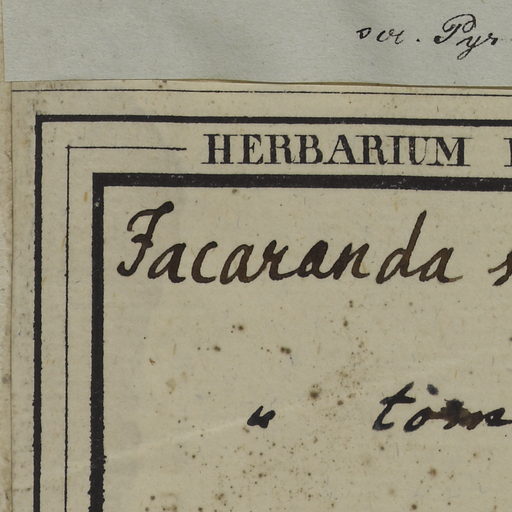 scr. Pyr
HERBARIUM
Jacaranda
"